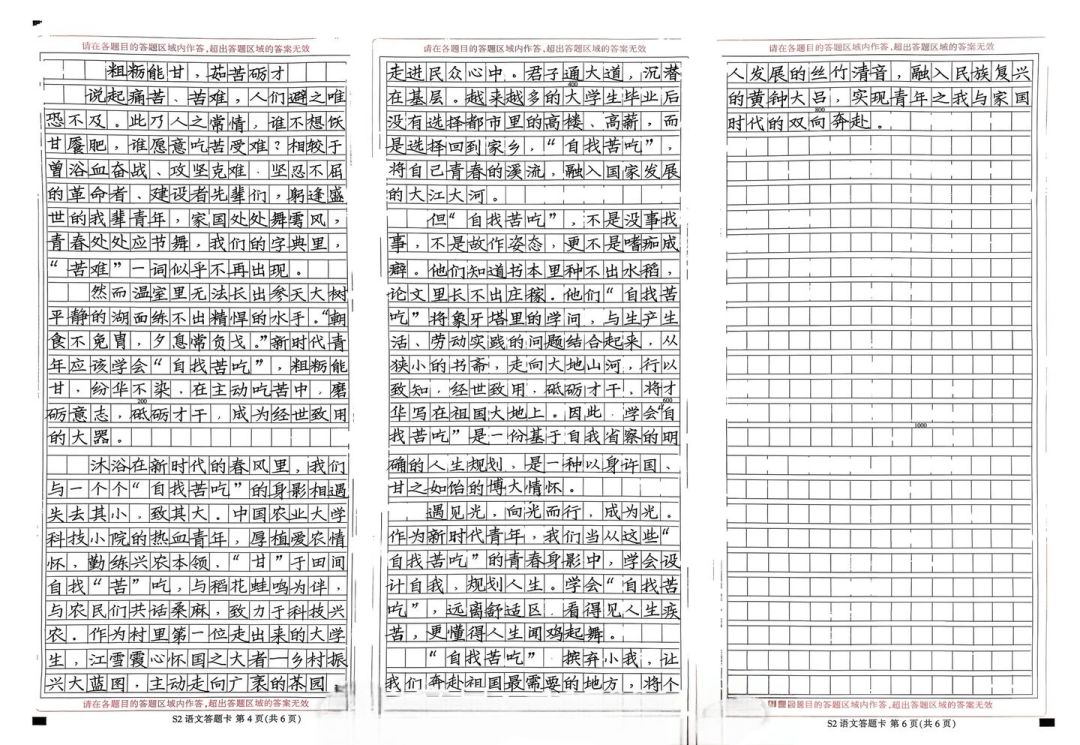 请在各题目的答题区域内作答,超出答题区域的答案无效
粗粝能甘，茹苦砺才
说起痛苦、苦难，人们避之唯
恐不及。此乃人之常情，谁不想饫
甘餍肥，谁愿意吃苦受难？相较于
曾浴血奋战、攻坚克难、坚忍不屈
的革命者、建设者先辈们，躬逢盛
世的我辈青年，家国处处舞雩风，
青春处处应节舞，我们的字典里，
“苦难”一词似乎不再出现。
然而温室里无法长出参天大树
平静的湖面练不出精悍的水手。“朝
食不免胄，夕息常负戈。”新时代青
年应该学会“自找苦吃”，粗粝能
甘，纷华不染，在主动吃苦中，磨
砺意志，砥砺才干，成为经世致用
200
的大器。
沐浴在新时代的春风里，我们
与一个个“自找苦吃”的身影相遇
失去其小，致其大。中国农业大学
科技小院的热血青年，厚植爱农情
怀，勤练兴农本领，“甘”于田间
自找“苦”吃，与稻花蛙鸣为伴，
与农民们共话桑麻，致力于科技兴
农。作为村里第一位走出来的大学
生，江雪霞心怀国之大者—乡村振
兴大蓝图，主动走向广袤的茶园
请在各题目的答题区域内作答,超出答题区域的答案无效
S2 语文答题卡 第 4 页(共 6 页)
请在各题目的答题区域内作答,超出答题区域的答案无效
走进民众心中。君子通大道，沉潜
400
在基层。越来越多的大学生毕业后
没有选择都市里的高楼、高薪，而
是选择回到家乡，“自找苦吃”，
将自己青春的溪流，融入国家发展
的大江大河。
但“自找苦吃”，不是没事找
事，不是故作姿态，更不是嗜痂成
癖。他们知道书本里种不出水稻，
论文里长不出庄稼。他们“自找苦
吃”将象牙塔里的学问，与生产生
活、劳动实践的问题结合起来，从
狭小的书斋，走向大地山河，行以
致知，经世致用，砥砺才干，将才
600
华写在祖国大地上。因此，学会“自
找苦吃”是一份基于自我省察的明
确的人生规划，是一种以身许国、
甘之如饴的博大情怀。
遇见光，向光而行，成为光。
作为新时代青年，我们当从这些“
自找苦吃”的青春身影中，学会设
计自我，规划人生。学会“自找苦
吃”，远离舒适区，看得见人生疾
苦，更懂得人生闻鸡起舞。
“自找苦吃”摈弃小我，让
我们奔赴祖国最需要的地方，将个
请在各题目的答题区域内作答,超出答题区域的答案无效
人发展的丝竹清音，融入民族复兴
的黄钟大吕，实现青年之我与家国
800
时代的双向奔赴。
1000
题目的答题区域内作答,超出答题区域的答案无效
S2 语文答题卡 第 6 页(共 6 页)